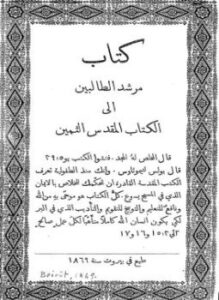 كتاب
مرشد الطالبين
الى
الكتاب المقدس الثمين
قال المخلص لهُ المجد. فتشوا الكتب يو ٥: ٣٩
قال بولس لتيموثاوس. وانك منذ الطفولية تعرف
الكتب المقدسة القادرة ان تحكمك للخلاص بالايمان
الذي في المسيح يسوع. كل الكتاب هو موحًى به من الله
ونافع للتعليم والتوبيخ للتقويم والتأديب الذي في البر
لكي يكون انسان الله كاملاً متأهبًا لكل عمل صالح
٢تي ٣: ١٥ و١٦ و١٧
طبع في بيروت سنة ١٨٦٩
Beirût, 1869.